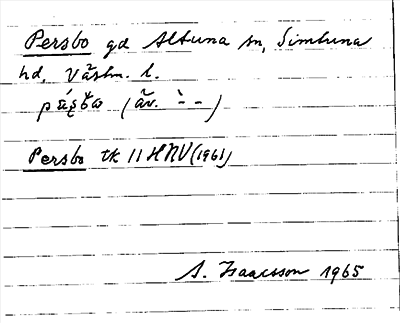 Persbo gd Altuna sn, Simtuna
hd, Västm. l.
(äv. `- -)
Persbo tk 11 HNV (1961)
A. Isaacsson 1965